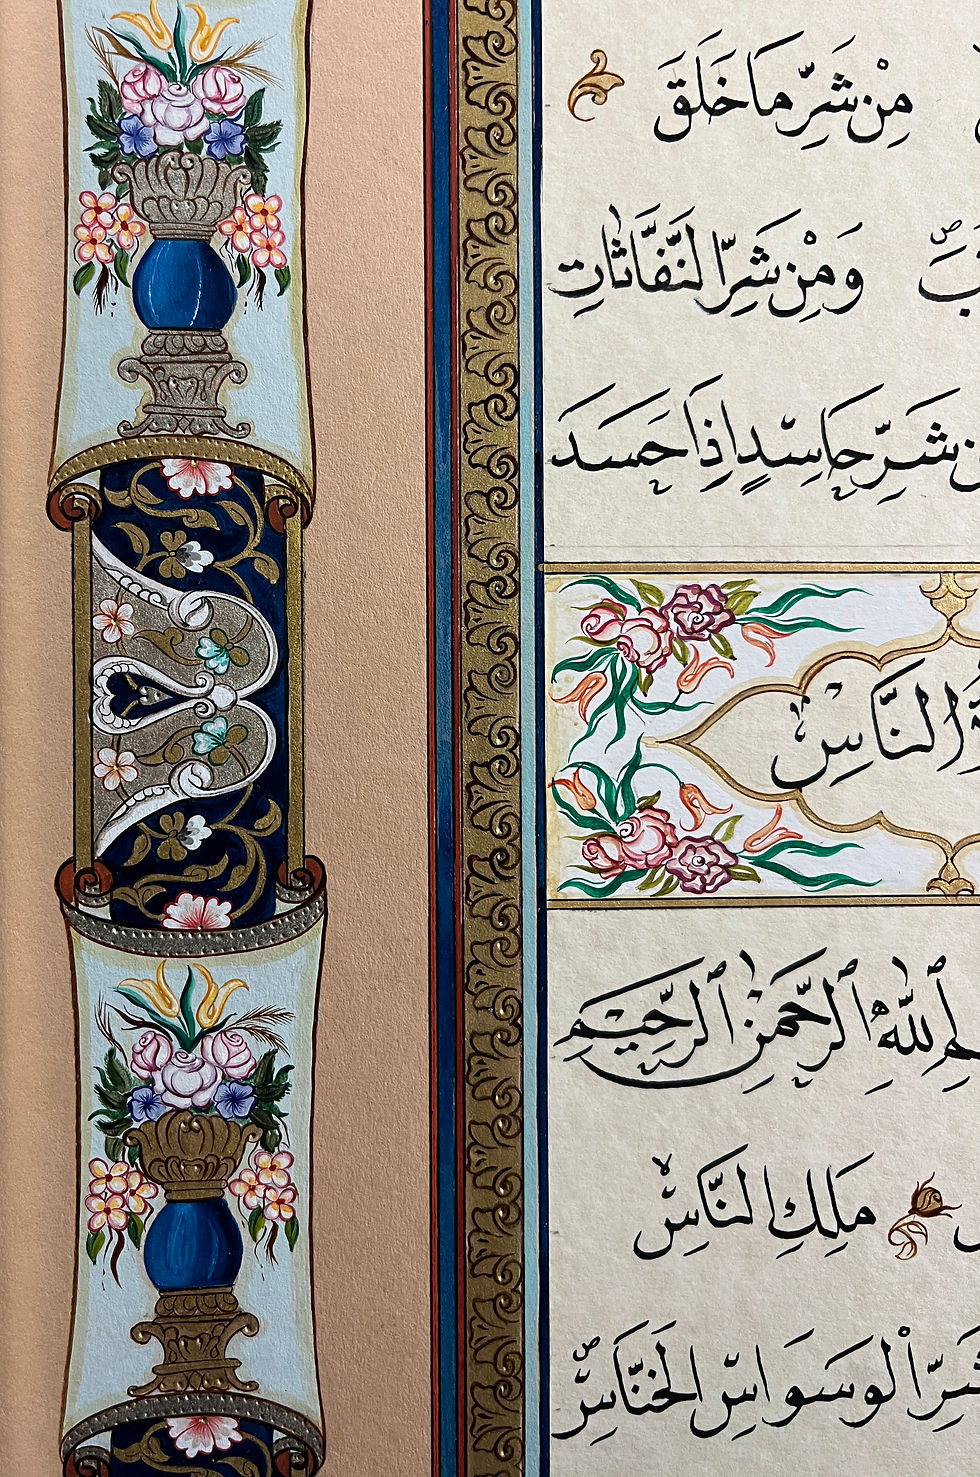 مِنْ شَرِّ مَا خَلَقَ
وَمِنْ شَرِّ النَّفَّاثَاتِ
شَرِّ حَاسِدٍ إِذَا حَسَدَ
النَّاسِ
ٱللَّهِ ٱلرَّحْمَنِ ٱلرَّحِيمِ
مَلِكِ النَّاسِ
الْوَسْوَاسِ الْخَنَّاسِ